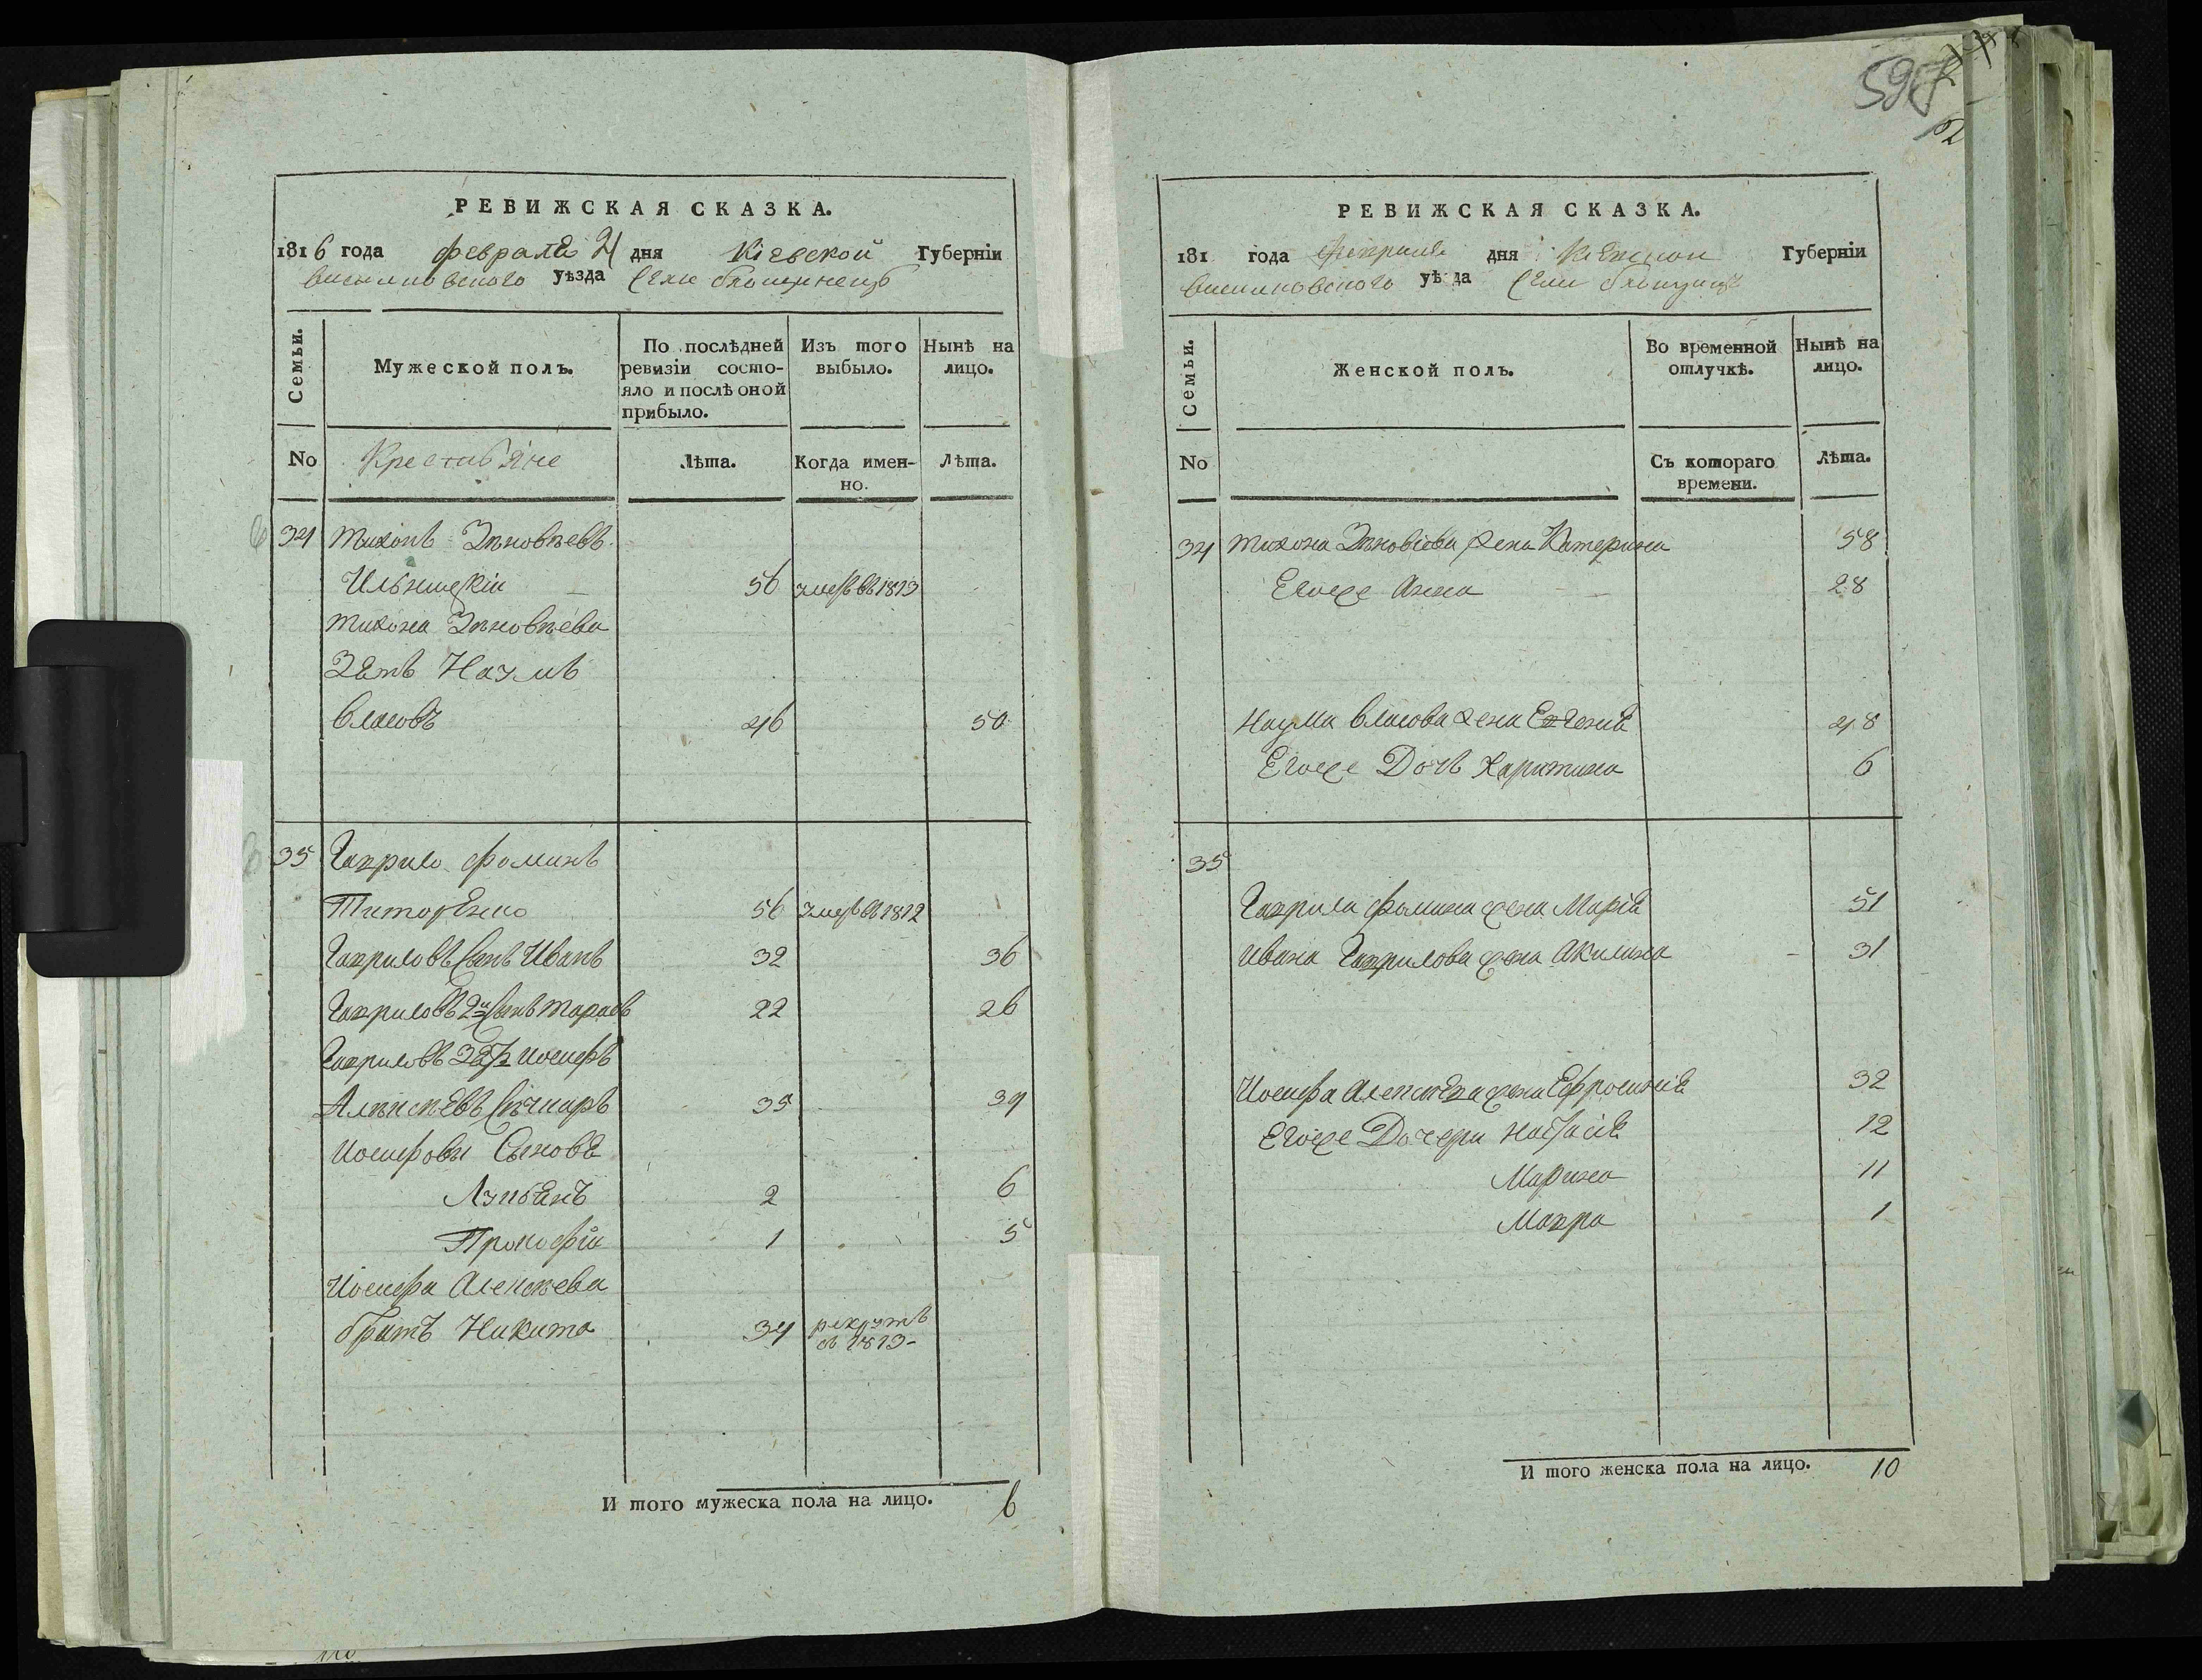 597
РЕВИЖСКАЯ СКАЗКА.
1816 года февраля 21 дня Кіевской Губерніи
василковского уѣзда села
Семьи.
Мужеской полъ.
По послѣдней ревизіи состо-
яло и послѣ оной прибыло.
Изъ того выбыло.
Нынѣ на лицо.
No Крестьяне Лѣта. Когда имен-
но. Лѣта.
34 Тихонъ Зѣновѣевъ
Ильницкій 56 умеръ въ 1813
Тихона Зѣновѣева
Зять Наумъ
Власовъ 46 50
35 Гаврило Фоминъ
Титоренко 56 умеръ въ 1812
Гавриловъ Сынъ Иванъ 32 36
Гавриловъ 2й Сынъ Тарасъ 22 26
Гавриловъ Зять Иосифъ
Алѣксѣевъ 35 39
Иосифовы Сыновя
Лукьянъ 2 6
Прокофій 1 5
Иосифа Алексѣева
братъ Никита 34 рекрутъ
въ 1813-
И того мужеска пола на лицо. 6
РЕВИЖСКАЯ СКАЗКА.
181 года февраля дня Кіевской Губерніи
василковского уѣзда села
Семьи.
Женской полъ.
Во временной отлучкѣ.
Нынѣ на лицо.
No Съ котораго времени. Лѣта.
34 Тихона Зѣновіева жена Катерина 58
Егоже Анна 28
Наума Власова жена Евгенія 48
Егоже Дочь Харитина 6
35
Гаврила Фомина жена Марія 51
Ивана Гаврилова жена Акилина 31
Иосифа Алексѣева жена Ефросинія 32
Егоже Дочери Настасія 12
Марина 11
Мавра 1
И того женска пола на лицо. 10